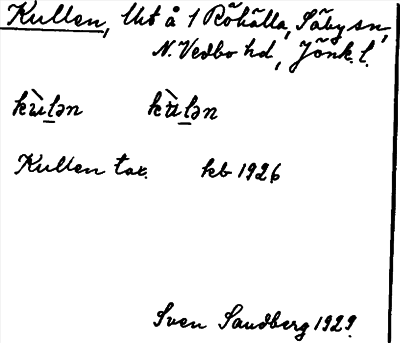 Kullen, lht å 1 Röhälla, Säby sn,
N. Vedbo hd, Jönk. l.
kùlən kùlən
Kullen tax. kb 1926
Sven Sandberg 1929.